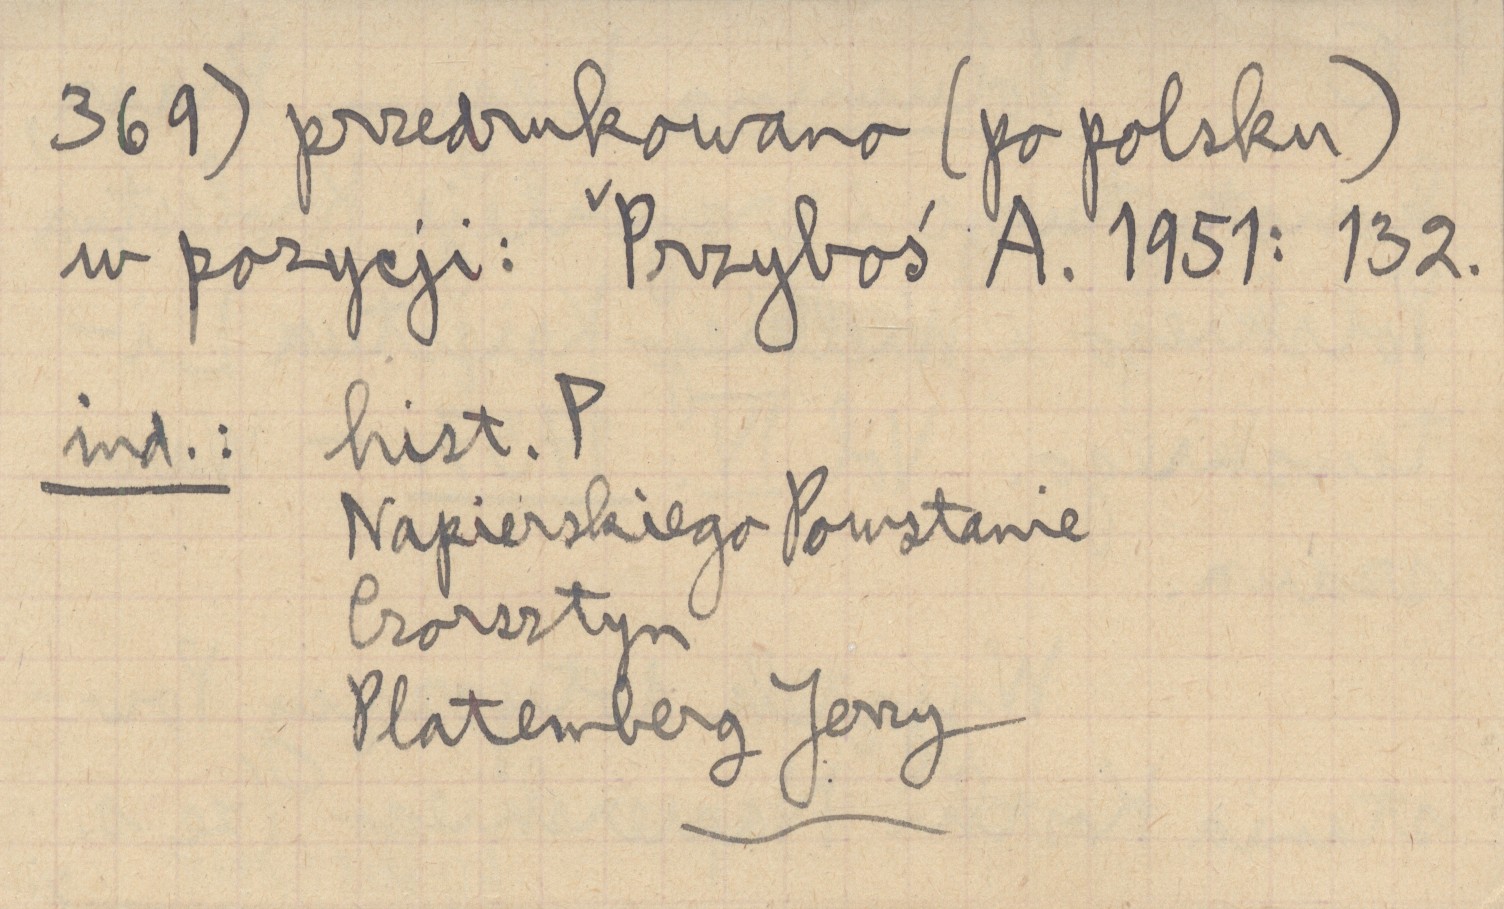 369) przedrukowano (po polsku)
w pozycji: ˅Przyboś A. 1951: 132.
ind.: hist. P
Napierskiego Powstanie
Czorsztyn
Platemberg Jerzy